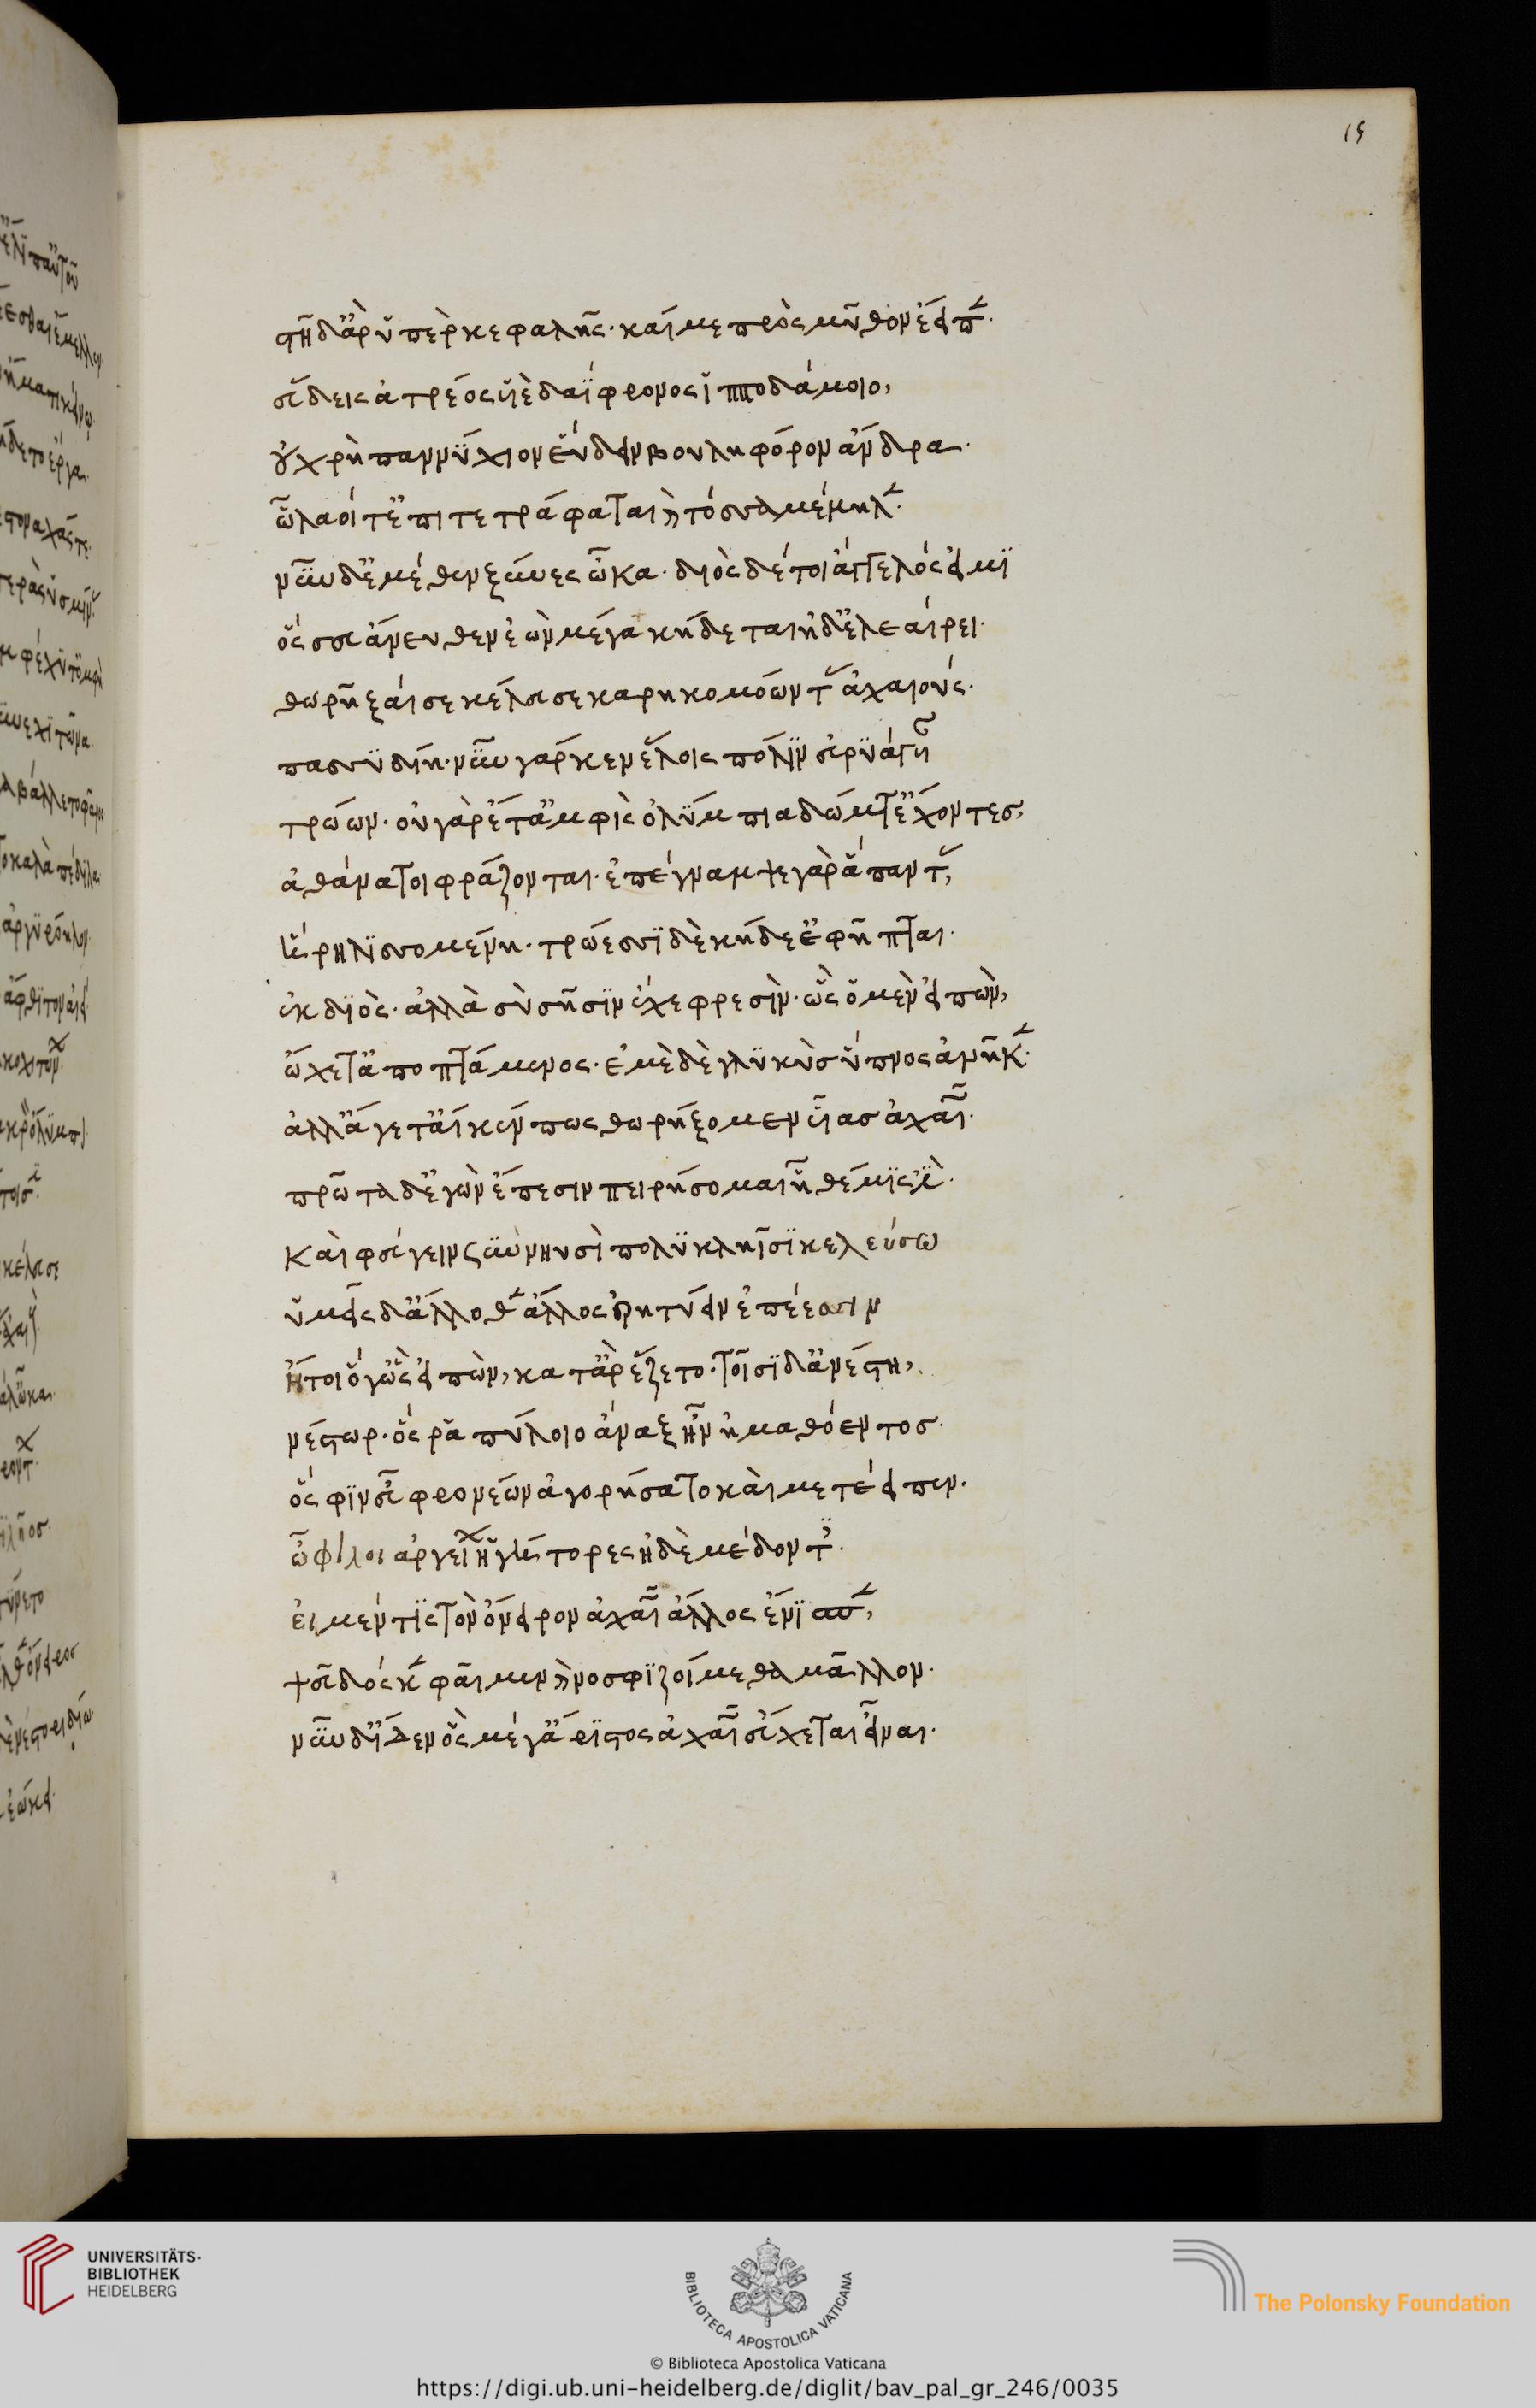 15
στῆ δ' ἄρ ὑπὲρ κεφαλῆς· καί με πρὸς μῦθον ἔειπε·
εὕδεις ἀτρέος υἱὲ δαΐφρονος ἱπποδάμοιο,
οὐ χρὴ παννύχιον εὕδειν βουληφόρον ἄνδρα·
ὧ λαοί τ' ἐπιτετράφαται καὶ τόσσα μέμηλε·
νῦν δ' ἐμέθεν ξύνες ὦκα· διὸς δέ τοι ἄγγελός εἰμι
ὅς σευ ἄνευθεν ἐὼν μέγα κήδεται ἠδ' ἐλεαίρει·
θωρῆξαί σε κέλευσε καρηκομόωντας ἀχαιούς·
πασσυδίη· νῦν γάρ κεν ἕλοις πόλιν εὐρυάγυιαν
τρώων· οὐ γὰρ ἔτ' ἀμφὶς ὀλύμπια δώματ' ἔχοντες,
ἀθάνατοι φράζονται· ἐπέγναμψε γὰρ ἅπαντας,
ἥρη λισσομένη· τρώεσσι δὲ κήδε' ἐφῆπται·
ἐκ διὸς· ἀλλὰ σὺ σῆσιν ἔχε φρεσὶν· ὣς ὁ μὲν εἰπὼν,
ὤχετ' ἀποπτάμενος· ἐμὲ δὲ γλυκὺς ὕπνος ἀνῆκε·
ἀλλ' ἄγετ' αἴ κέν πως θωρήξομεν υἷας ἀχαιῶν·
πρῶτα δ' ἐγὼν ἔπεσιν πειρήσομαι ἣ θέμις ἐστὶ·
καὶ φεύγειν σὺν νηυσὶ πολυκλήισι κελεύσω
ὑμεῖς δ' ἄλλοθεν ἄλλος ἐρητύειν ἐπέεσσιν
ἤτοι ὅγ' ὣς εἰπὼν, κατ' ἂρ ἕζετο· τοῖσι δ' ἀνέστη,
νέστωρ· ὅς ρα πύλοιο ἄναξ ἦν ἠμαθόεντος·
ὅς φιν εὖ φρονέων ἀγορήσατο καὶ μετέειπεν·
ὦ φίλοι ἀργείων ἡγήτορες ἠδὲ μέδοντες·
εἰ μέν τις τὸν ὄνειρον ἀχαιῶν ἄλλος ἔνισπε,
ψεῦδός κε φαῖμεν καὶ νοσφιζοίμεθα μᾶλλον·
νῦν δ' ἴδεν ὃς μέγ' ἄριστος ἀχαιῶν εὔχεται εἶναι·
UNIVERSITÄTS-
BIBLIOTHEK
HEIDELBERG
BIBLIOTECA APOSTOLICA VATICANA
The Polonsky Foundation
© Biblioteca Apostolica Vaticana
https://digi.ub.uni-heidelberg.de/diglit/bav_pal_gr_246/0035